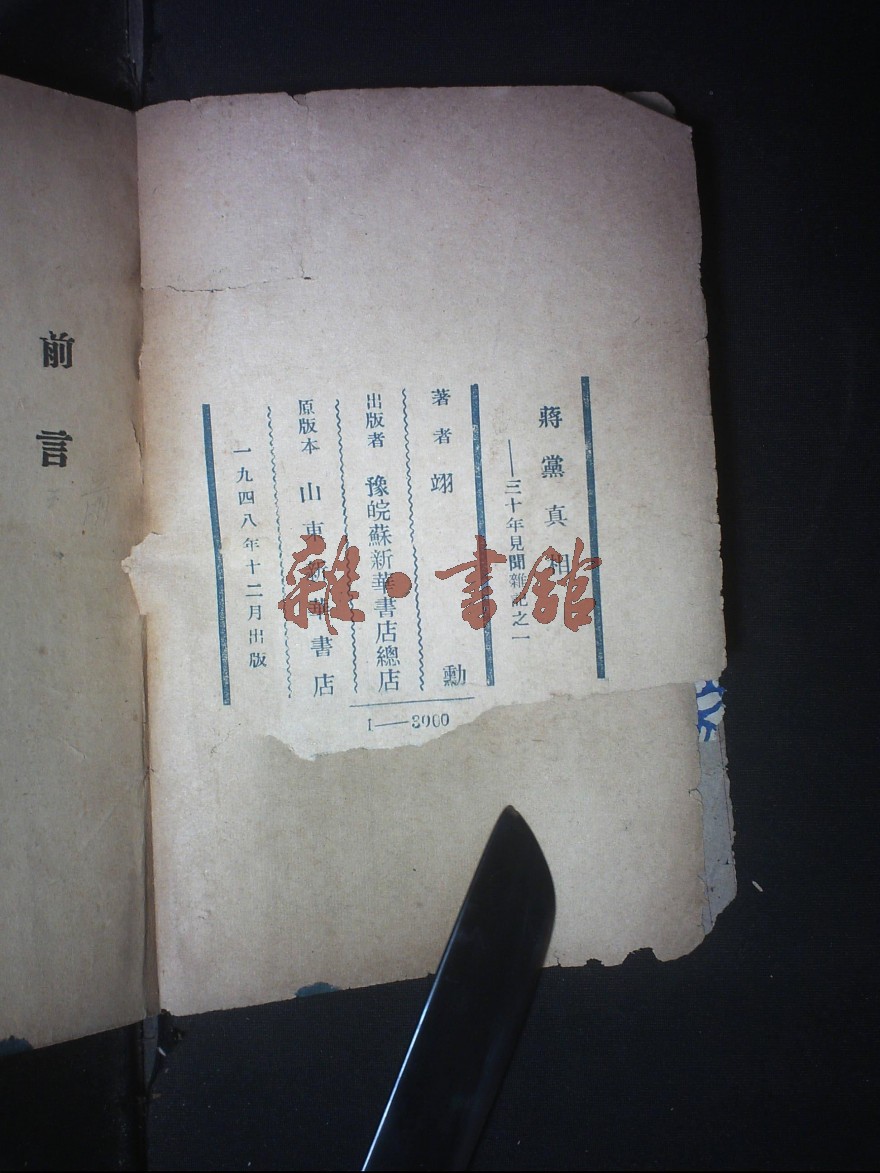 蔣黨真相
——三十年見聞雜記之一
著者 翊勳
出版者 豫皖蘇新華書店總店
原版本 山東新華書店
一九四八年十二月出版
1——3000
前言
雜·書館